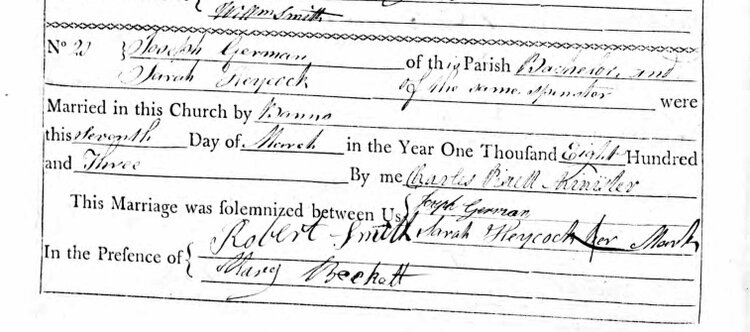 Willm Smith
No 2 { Joseph German of this Parish Bachelor, and
Sarah Heycock of the same Spinster were
Married in this Church by Banns
this Seventh Day of March in the Year One Thousand Eight Hundred
and Three By me Charles Minister
This Marriage was solemnized between Us { Joseph German
Sarah Heycock her Mark
In the Presence of { Robert Smith
Mary Beckett